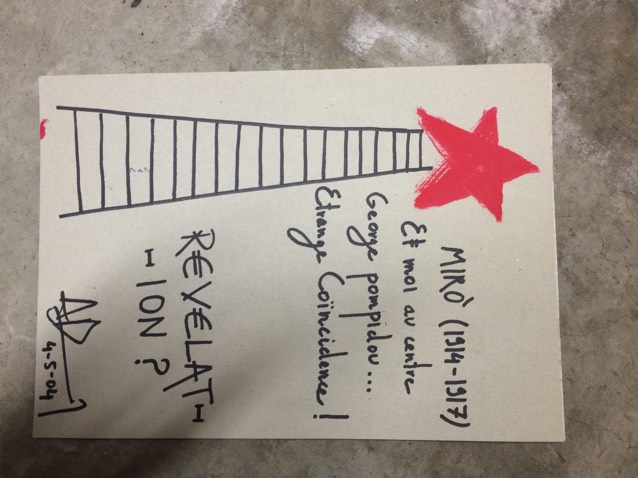 MIRÒ (1914-1917)
Et moi au centre
George pompidou...
Etrange Coïncidence!
REVELAT-
-ION?
4-5-04